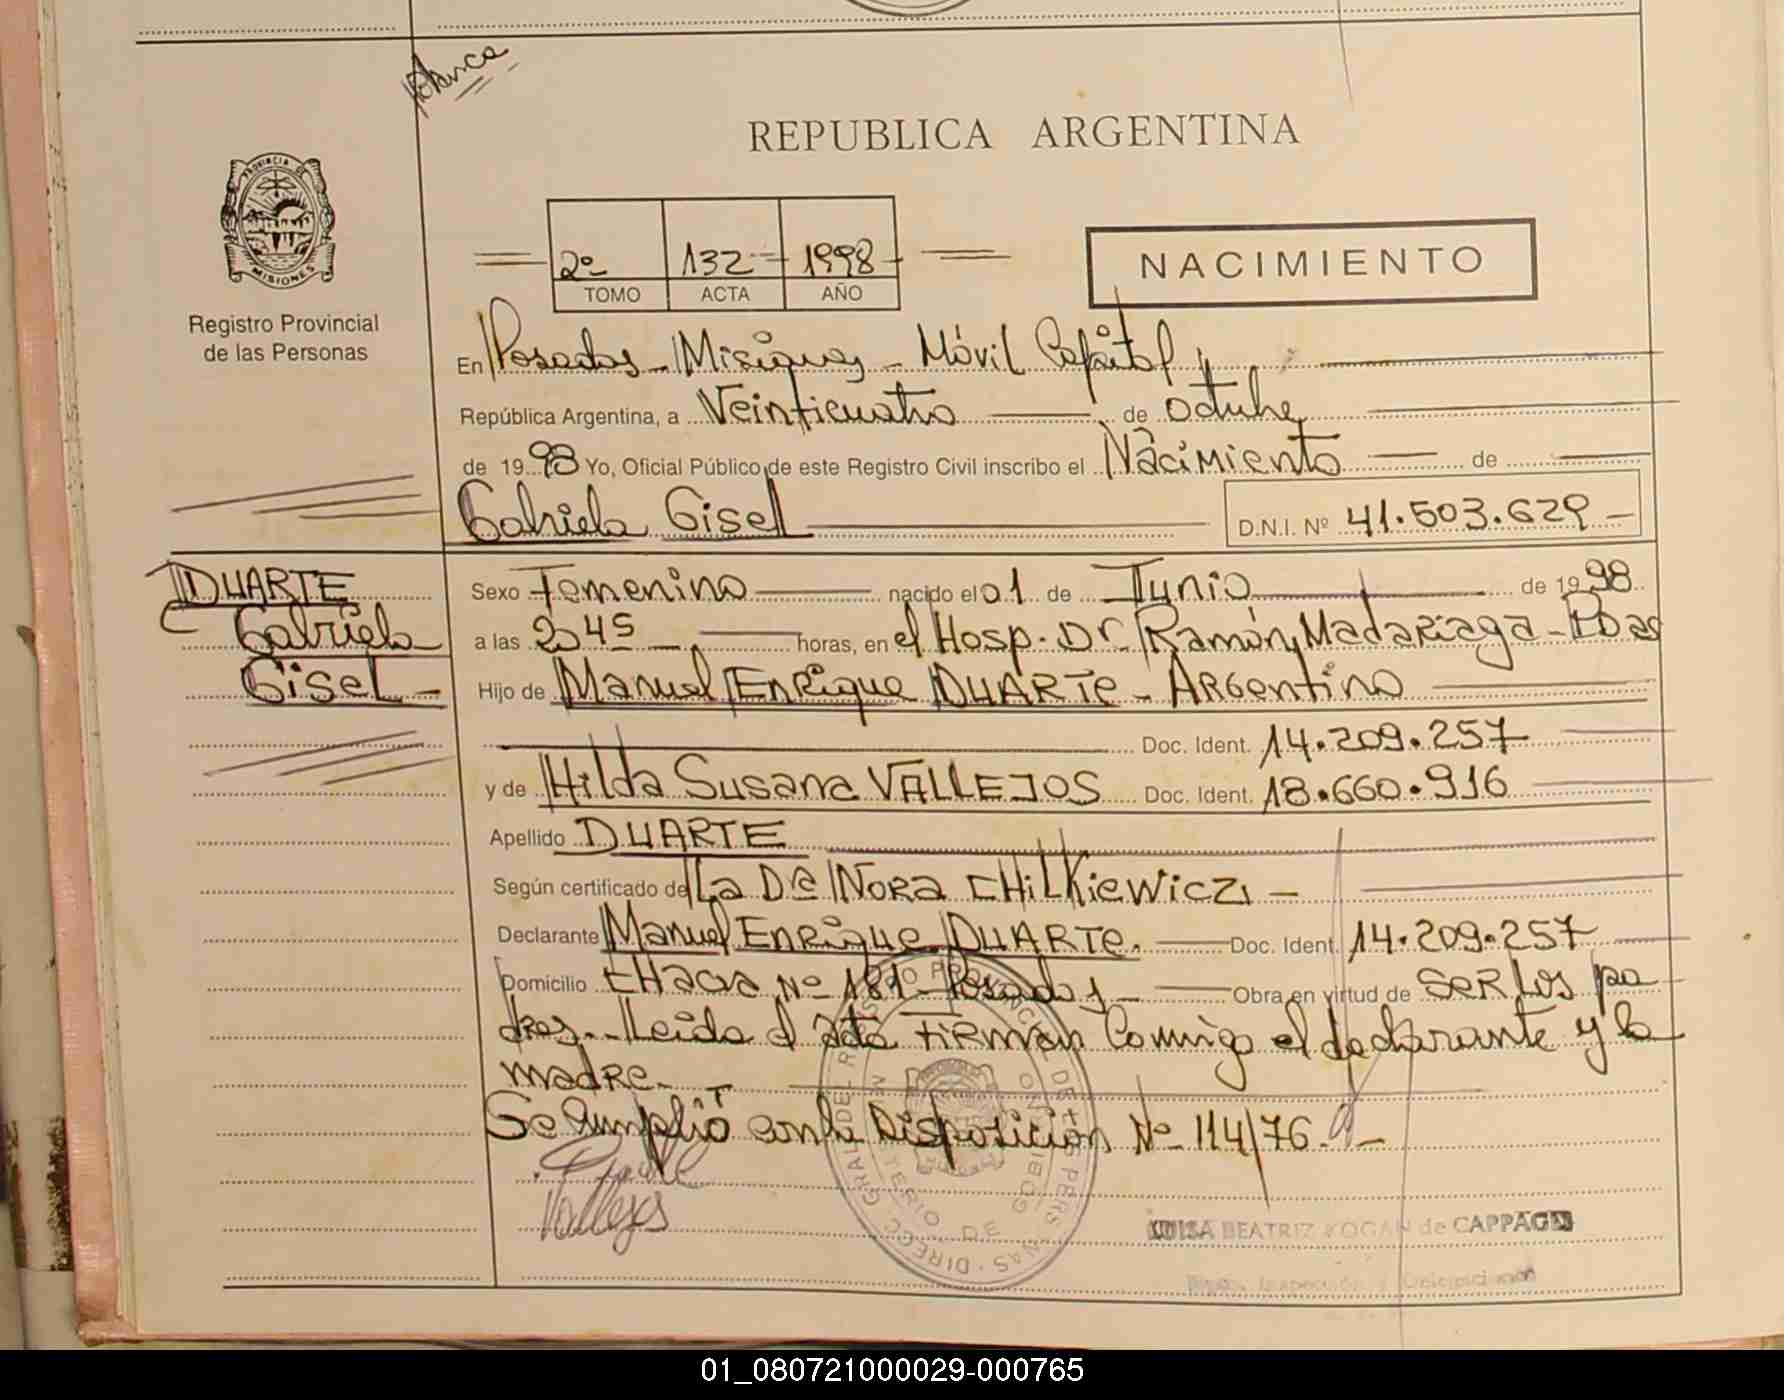 Blanca
REPUBLICA ARGENTINA
PROVINCIA DE MISIONES
Registro Provincial
de las Personas
2º 132 1998
TOMO ACTA AÑO
NACIMIENTO
En Posadas - Misiones - Móvil Capital
República Argentina, a Veinticuatro de octubre
de 1998 Yo, Oficial Público de este Registro Civil inscribo el Nacimiento de
Gabriela Gisel D.N.I. Nº 41.503.629 -
DUARTE
Gabriela
Gisel -
Sexo Femenino nacido el 01 de Junio de 1998
a las 2045 - horas, en el Hosp. Dr. Ramón Madariaga - Pdas
Hijo de Manuel Enrique DUARTE - Argentino
Doc. Ident. 14.209.257
y de Hilda Susana VALLEJOS Doc. Ident. 18.660.916
Apellido DUARTE
Según certificado de La Dra NORA CHILKiewicz -
Declarante Manuel Enrique DUARTE. Doc. Ident. 14.209.257
Domicilio CHacra Nº 181 - Posadas - Obra en virtud de SER los pa
dres. - Leida el acta Firman Conmigo el declarante y la
madre. -
Se cumplió con la Disposición Nº 114/76. -
Vallejos
LUISA BEATRIZ KOGAN de CAPPAGLI
01_080721000029-000765